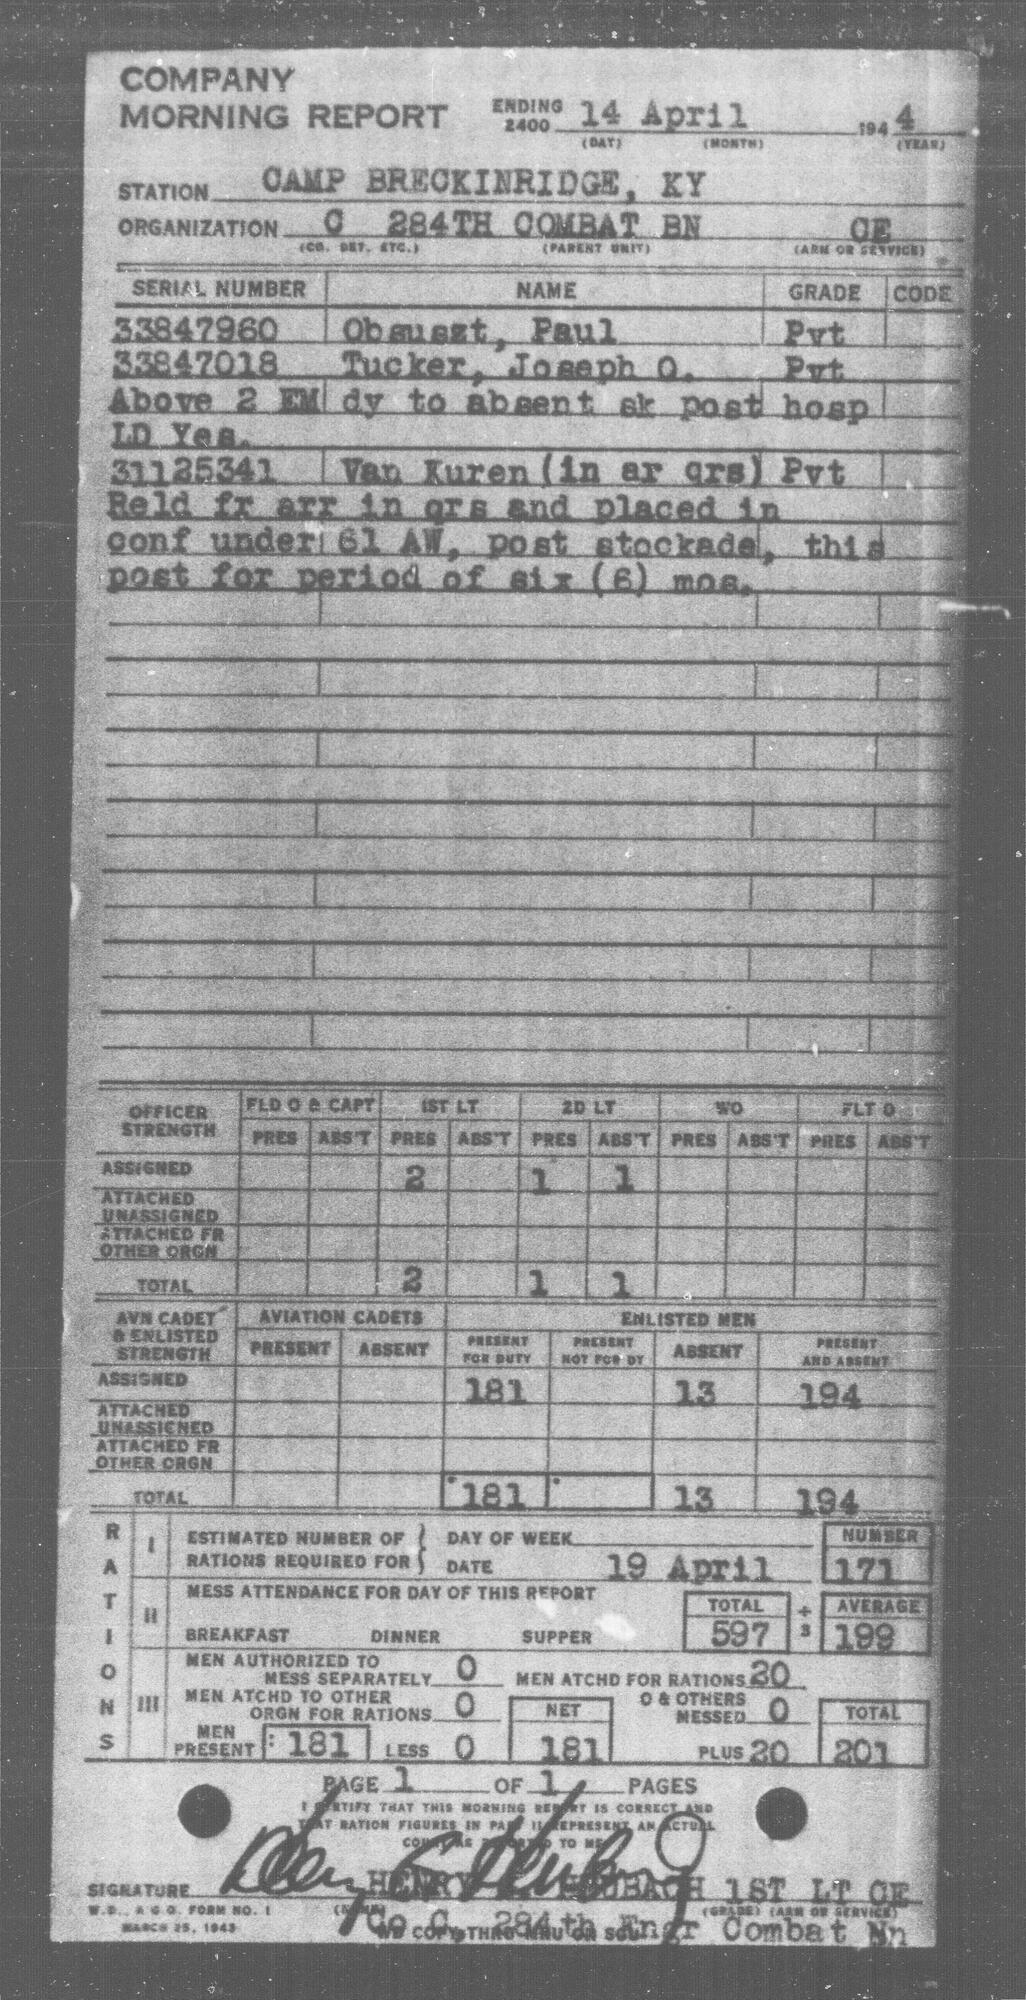 COMPANY
MORNING REPORT ENDING 2400 14 April 194 4
(DAY) (MONTH) (YEAR)
STATION CAMP BRECKINRIDGE, KY
ORGANIZATION C 284TH COMBAT BN CE
(CO. DET. ETC.) (PARENT UNIT) (ARM OR SERVICE)
SERIAL NUMBER NAME GRADE CODE
33847960 Obsuszt, Paul Pvt
33847018 Tucker, Joseph O. Pvt
Above 2 EM dy to absent sk post hosp
LD Yes.
31125341 Van Kuren (in ar qrs) Pvt
Reld fr arr in qrs and placed in
conf under 61 AW, post stockade, this
post for period of six (6) mos.
OFFICER STRENGTH FLD O & CAPT 1ST LT 2D LT WO FLT O
PRES ABS'T PRES ABS'T PRES ABS'T PRES ABS'T PRES ABS'T
ASSIGNED 2 1 1
ATTACHED UNASSIGNED
ATTACHED FR OTHER ORGN
TOTAL 2 1 1
AVN CADET & ENLISTED STRENGTH AVIATION CADETS ENLISTED MEN
PRESENT ABSENT PRESENT FOR DUTY PRESENT NOT FOR DY ABSENT PRESENT AND ABSENT
ASSIGNED 181 13 194
ATTACHED UNASSIGNED
ATTACHED FR OTHER ORGN
TOTAL 181 13 194
RATIONS
I ESTIMATED NUMBER OF RATIONS REQUIRED FOR DAY OF WEEK NUMBER
DATE 19 April 171
II MESS ATTENDANCE FOR DAY OF THIS REPORT TOTAL ÷ 3 AVERAGE
BREAKFAST DINNER SUPPER 597 199
III MEN AUTHORIZED TO MESS SEPARATELY 0 MEN ATCHD FOR RATIONS 20
MEN ATCHD TO OTHER ORGN FOR RATIONS 0 NET O & OTHERS MESSED 0 TOTAL
MEN PRESENT 181 LESS 0 181 PLUS 20 201
PAGE 1 OF 1 PAGES
I CERTIFY THAT THIS MORNING REPORT IS CORRECT AND
THAT RATION FIGURES IN PART II REPRESENT AN ACTUAL
COUNT AS REPORTED TO ME
SIGNATURE HENRY 1ST LT CE
W.D., A.G.O. FORM NO. 1 (NAME) (GRADE) (ARM OR SERVICE)
MARCH 25, 1943 Co C, 284th Engr Combat Bn
WD COPY THRU MRU OR SCU